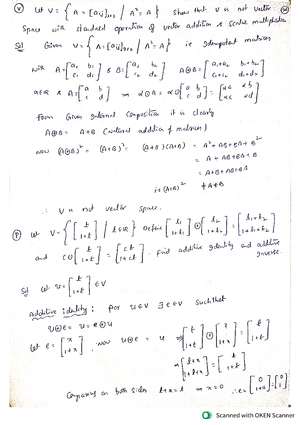 (v) Let V = { A = [aij]2x2 / A² = A } show that V is not vector
space with standard operation of vector addition & scalar multiplication
Sol Given V = { A = [aij]2x2 / A² = A } ie idempotent matrices
with A = [a1 b1; c1 d1] & B = [a2 b2; c2 d2] A⊕B = [a1+a2 b1+b2; c1+c2 d1+d2]
α∈R & A = [a b; c d] ⇒ α⊙A = α⊙[a b; c d] = [αa αb; αc αd]
from Given internal composition it is clearly
A⊕B = A+B (natural addition of matrices)
now (A⊕B)² = (A+B)² = (A+B)(A+B) = A² + AB + BA + B²
= A + AB + BA + B
= A+B + AB + BA
ie (A+B)² ≠ A+B
∴ V is not vector space.
Let V = { [t; 1+t] / t∈R } Define [t1; 1+t1] ⊕ [t2; 1+t2] = [t1+t2; 1+t1+t2]
and c⊙[t; 1+t] = [ct; 1+ct]. find additive identity and additive
inverse.
Sol Let u = [t; 1+t] ∈ V
additive identity: for u∈V ∃ e∈V such that
u⊕e = u = e⊕u
Let e = [x; 1+x] now u⊕e = u ⇒ [t; 1+t] ⊕ [x; 1+x] = [t; 1+t]
⇒ [t+x; 1+t+x] = [t; 1+t]
Comparing on both sides t+x = t ⇒ x = 0 ∴ e = [0; 1+0] = [0; 1]
Scanned with OKEN Scanner